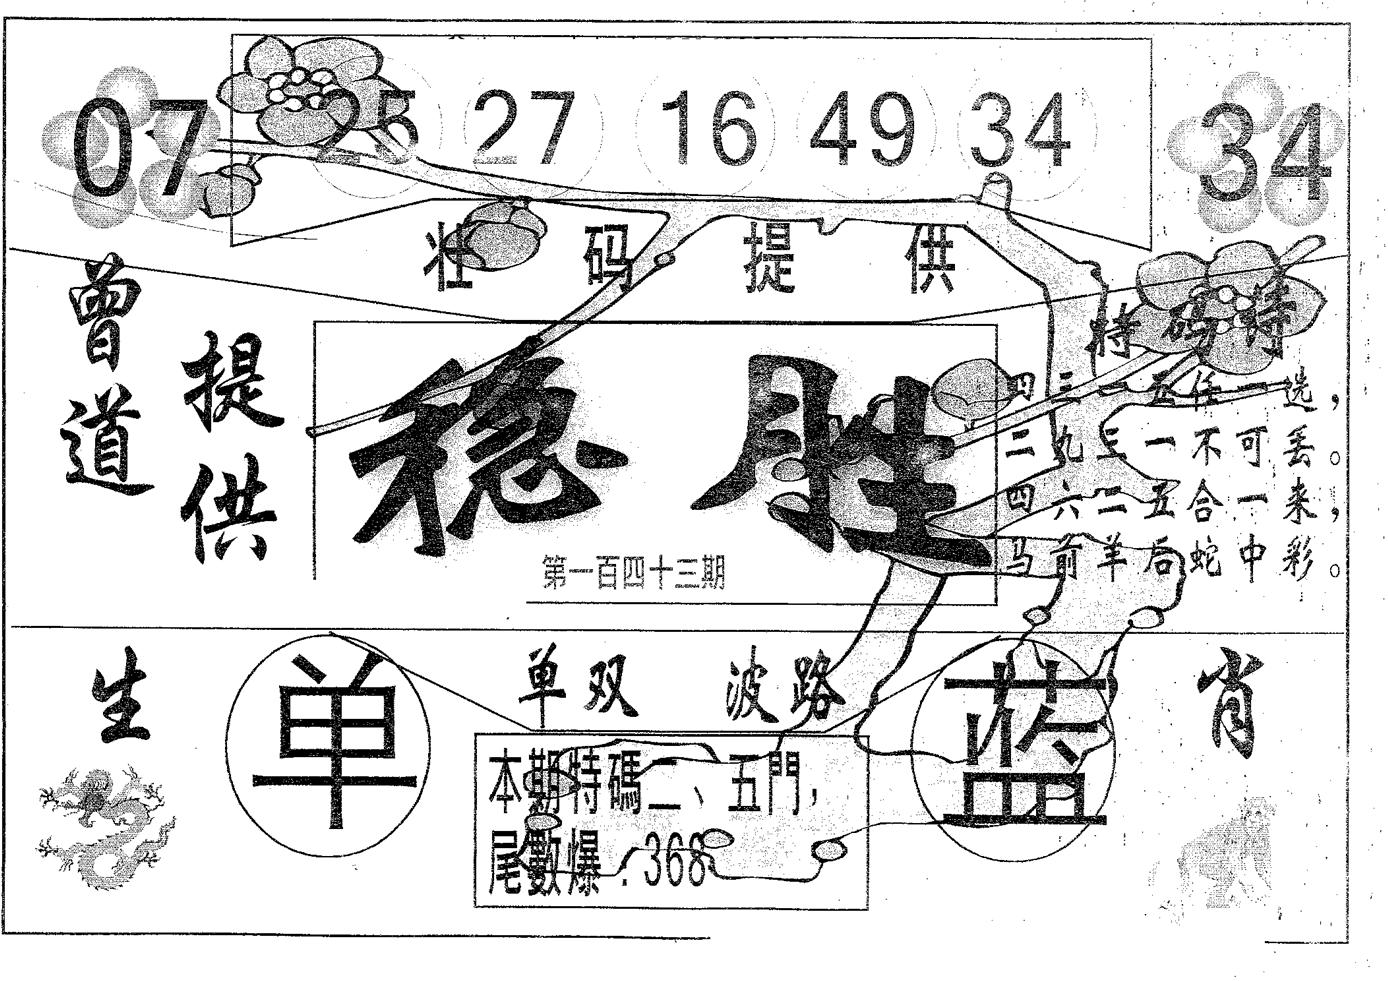 07 25 27 16 49 34 34
壮码提供
曾道
提供
稳胜
第一百四十三期
特码诗
四三一五任一选，
二九三一不可丢。
四六二五合一来，
马前羊后蛇中彩。
生
单
单双 波路
蓝
肖
本期特碼二、五門，
尾數爆：368